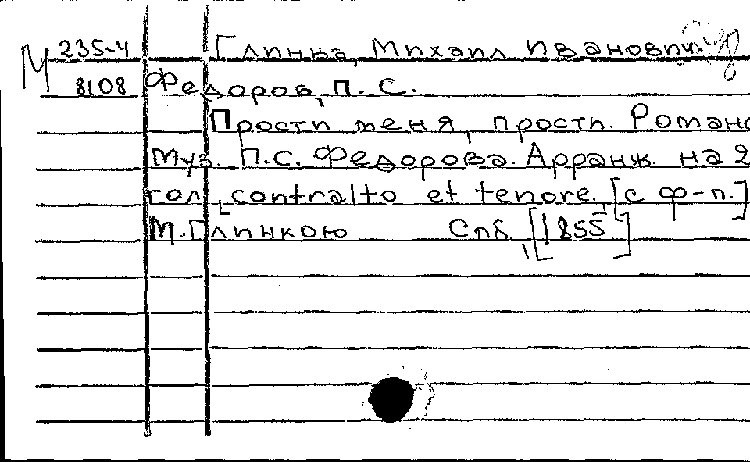 М 235-4 Глинка, Михаил Иванович
8108 Федоров, П. С.
Прости меня, прости. Романс
Муз. П.С. Федорова. Арранж. на 2
гол. [contralto et tenore, [с ф-п.]
М. Глинкою Спб, [1855]